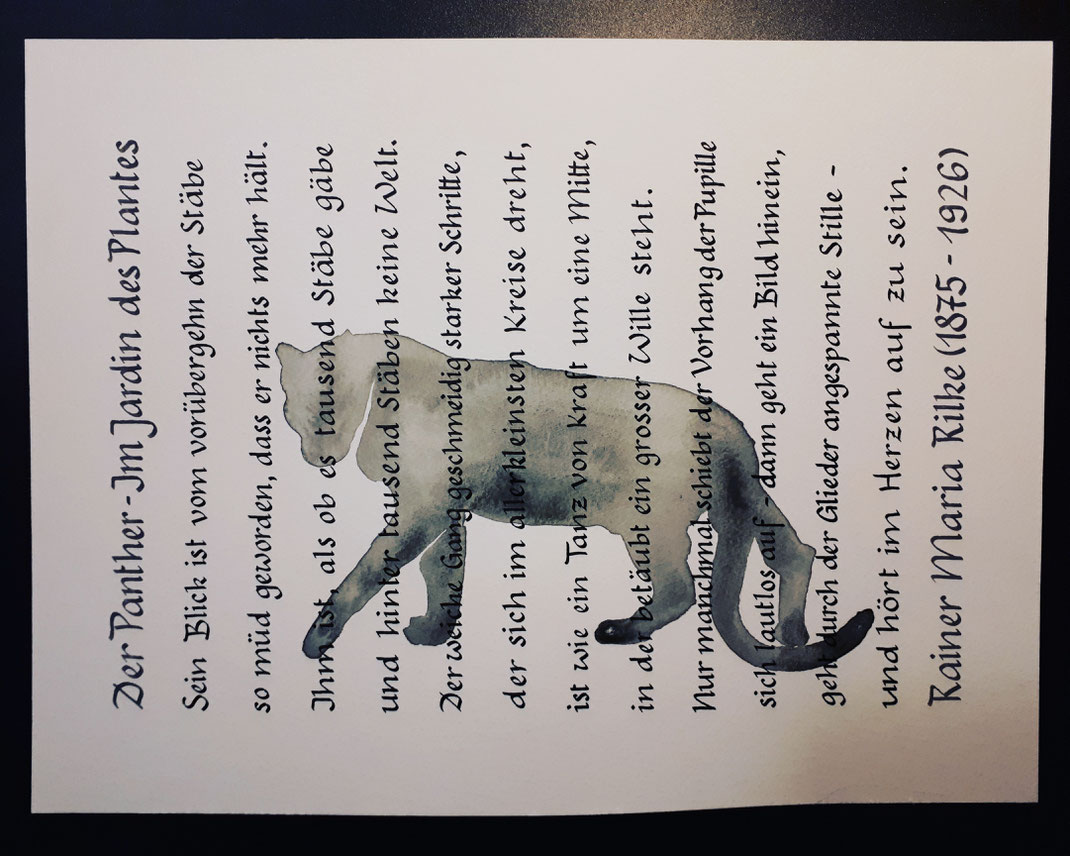 Der Panther - Im Jardin des Plantes
Sein Blick ist vom vorübergehn der Stäbe
so müd geworden, dass er nichts mehr hält.
Ihm ist, als ob es tausend Stäbe gäbe
und hinter tausend Stäben keine Welt.
Der weiche Gang geschmeidig starker Schritte,
der sich im allerkleinsten Kreise dreht,
ist wie ein Tanz von Kraft um eine Mitte,
in der betäubt ein grosser Wille steht.
Nur manchmal schiebt der Vorhang der Pupille
sich lautlos auf - dann geht ein Bild hinein,
geht durch der Glieder angespannte Stille -
und hört im Herzen auf zu sein.
Rainer Maria Rilke (1875 - 1926)